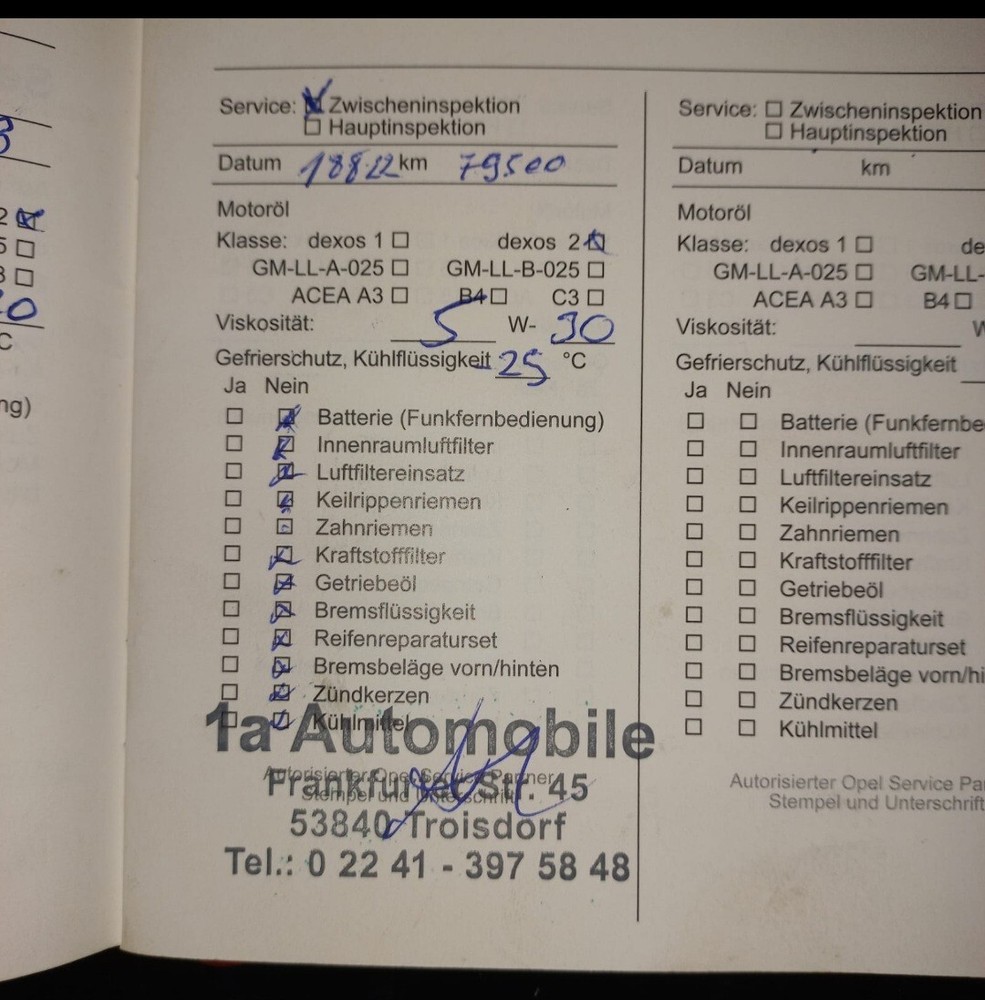 3
2 ☒
5 ☐
3 ☐
0
C
ng)
Service: ☒ Zwischeninspektion
☐ Hauptinspektion
Datum 18 8 22 km 79500
Motoröl
Klasse: dexos 1 ☐ dexos 2 ☒
GM-LL-A-025 ☐ GM-LL-B-025 ☐
ACEA A3 ☐ B4 ☐ C3 ☐
Viskosität: 5 W- 30
Gefrierschutz, Kühlflüssigkeit 25 °C
Ja Nein
☐ ☒ Batterie (Funkfernbedienung)
☐ ☒ Innenraumluftfilter
☐ ☒ Luftfiltereinsatz
☐ ☒ Keilrippenriemen
☐ ☒ Zahnriemen
☐ ☒ Kraftstofffilter
☐ ☒ Getriebeöl
☐ ☒ Bremsflüssigkeit
☐ ☒ Reifenreparaturset
☐ ☒ Bremsbeläge vorn/hinten
☐ ☒ Zündkerzen
☐ ☒ Kühlmittel
1a Automobile
Autorisierter Opel Service Partner
Frankfurter Str. 45
Stempel und Unterschrift
53840 Troisdorf
Tel.: 0 22 41 - 397 58 48
Service: ☐ Zwischeninspektion
☐ Hauptinspektion
Datum km
Motoröl
Klasse: dexos 1 ☐ de
GM-LL-A-025 ☐ GM-LL-
ACEA A3 ☐ B4 ☐
Viskosität: W
Gefrierschutz, Kühlflüssigkeit
Ja Nein
☐ ☐ Batterie (Funkfernbe
☐ ☐ Innenraumluftfilter
☐ ☐ Luftfiltereinsatz
☐ ☐ Keilrippenriemen
☐ ☐ Zahnriemen
☐ ☐ Kraftstofffilter
☐ ☐ Getriebeöl
☐ ☐ Bremsflüssigkeit
☐ ☐ Reifenreparaturset
☐ ☐ Bremsbeläge vorn/hi
☐ ☐ Zündkerzen
☐ ☐ Kühlmittel
Autorisierter Opel Service Pa
Stempel und Unterschrift